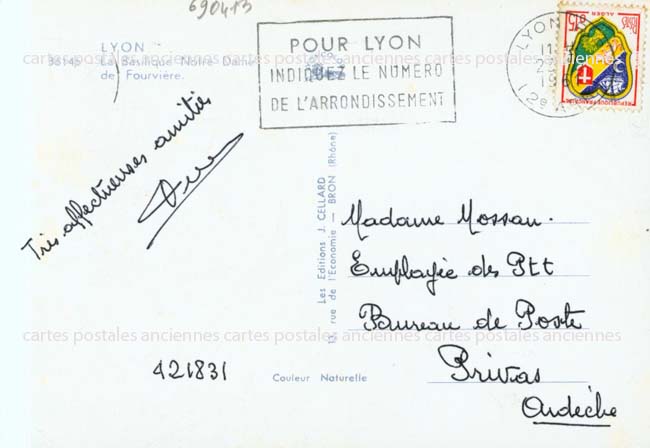 690413
LYON
38145 La Basilique Notre Dame
de Fourvière.
POUR LYON
INDIQUEZ LE NUMERO
DE L'ARRONDISSEMENT
LYON
12e
ALGER
REPUBLIQUE FRANÇAISE
cartes postales anciennes cartes postales anciennes cartes postales anciennes
Très affectueuses amitiés
Les Editions J. CELLARD
13, rue de l'Economie — BRON (Rhône)
Madame Mossan.
Employée des Ptt
Bureau de Poste
Privas
Ardèche
cartes postales anciennes cartes postales anciennes cartes postales anciennes
421831
Couleur Naturelle